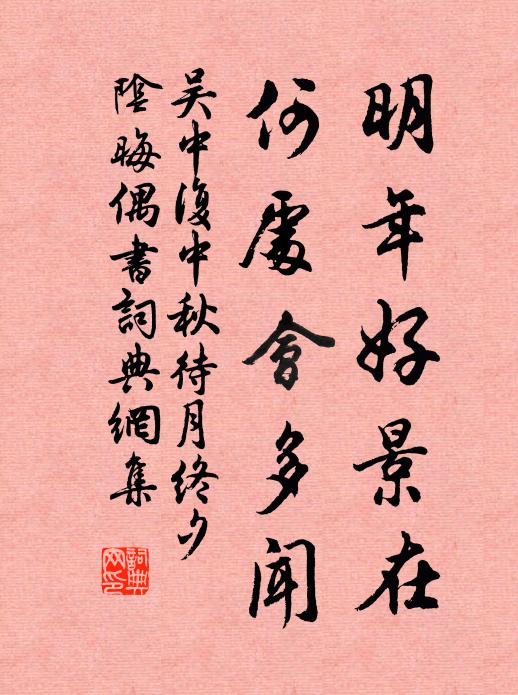 明年好景在
何處會多聞
吳中復中秋待月終夕
陰晦偶書詞典網集
詞典网印